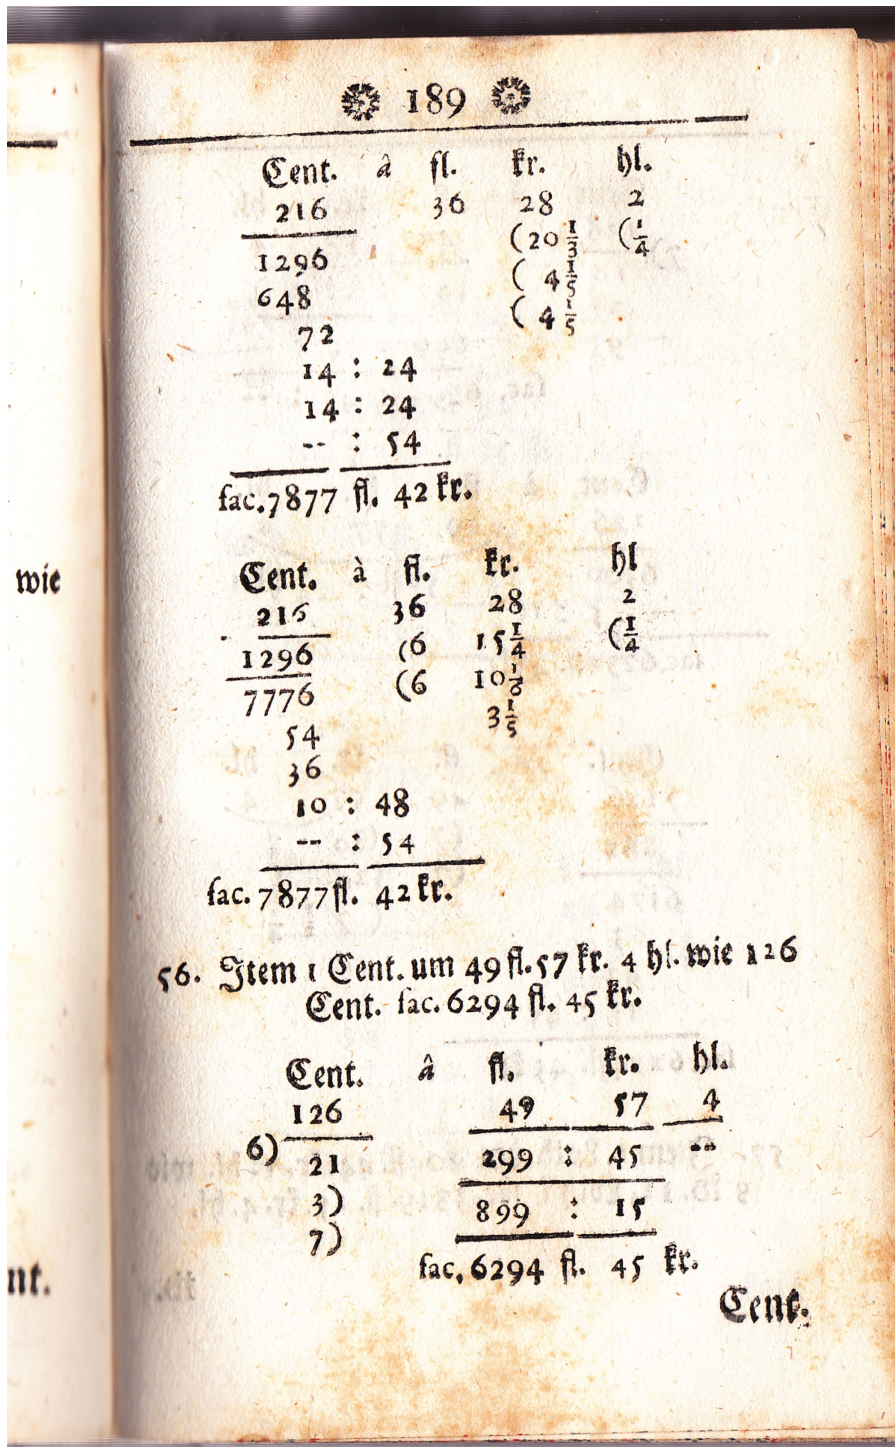 189
Cent. â fl. kr. hl.
216 36 28 2
1296 (20 1/3 (1/4
648 ( 4 1/5
72 ( 4 1/5
14 : 24
14 : 24
-- : 54
fac. 7877 fl. 42 kr.
Cent. à fl. kr. hl
216 36 28 2
1296 (6 15 1/4 (1/4
7776 (6 10 1/6
54 3 1/5
36
10 : 48
-- : 54
fac. 7877 fl. 42 kr.
56. Item 1 Cent. um 49 fl. 57 kr. 4 hl. wie 126
Cent. fac. 6294 fl. 45 kr.
Cent. â fl. kr. hl.
126 49 57 4
6) 21 299 : 45 --
3) 899 : 15
7)
fac. 6294 fl. 45 kr.
Cent.
wie
nt.